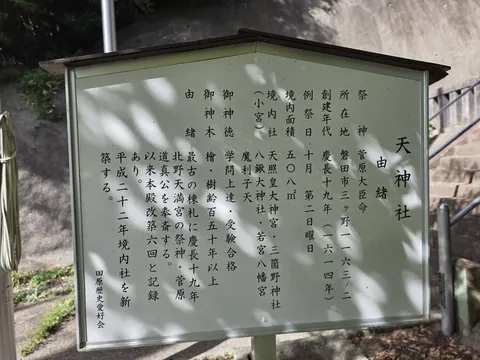 天神社
由緒
祭神 菅原大臣命
所在地 磐田市三ケ野一六三ノ二
創建年代 慶長十九年(一六一四年)
例祭日 十月 第二日曜日
境内面積 五〇八㎡
境内社 天照皇大神宮・三箇野神社
(小宮) 八鍬大神社・若宮八幡宮
魔利子天
御神徳 学問上達・受験合格
御神木 檜・樹齢百五十年以上
由緒 最古の棟札に慶長十九年
北野天満宮の祭神、菅原
道真公を奉斎する。
以来本殿改築六回と記録
あり。
平成二十二年境内社を新
築する。
田原歴史愛好会